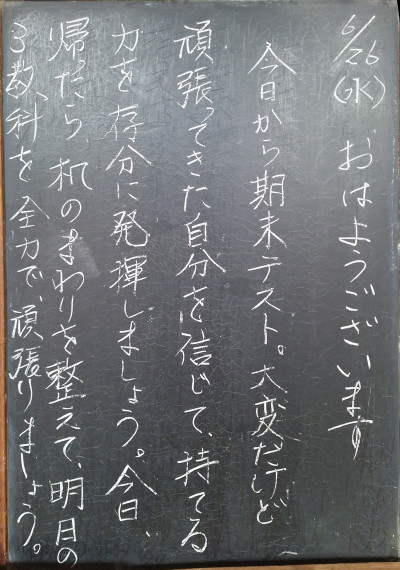 6/26(水) おはようございます
今日から期末テスト。大変だけど、
頑張ってきた自分を信じて、持てる
力を存分に発揮しましょう。今日、
帰ったら、机のまわりを整えて、明日の
3教科を全力で、頑張りましょう。